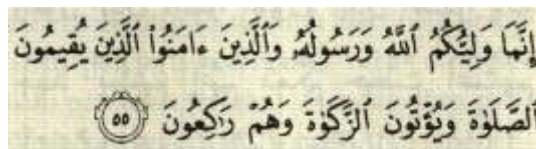 إِنَّمَا وَلِيُّكُمُ ٱللَّهُ وَرَسُولُهُۥ وَٱلَّذِينَ ءَامَنُوا۟ ٱلَّذِينَ يُقِيمُونَ
ٱلصَّلَوٰةَ وَيُؤْتُونَ ٱلزَّكَوٰةَ وَهُمْ رَٰكِعُونَ ٥٥